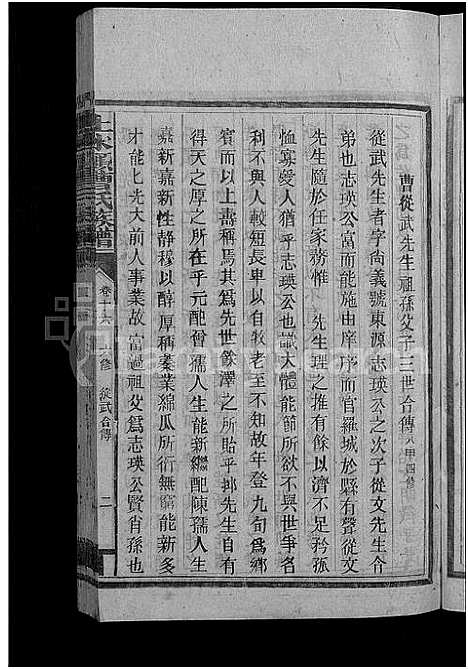 曹從武先生祖孫父子三世合傳 八甲四修
從武先生者字尚義號東源志瑛公之次子從文先生令
弟也志瑛公富而能以庠序而官羅城於縣有聲從文
先生隨於任家務惟 先生理之推有餘以濟不足矜孤
恤寡愛人猶乎志瑛也識大體能節所欲不與世爭名
利不與人較短長卑以自牧老至不知故年登九旬爲鄉
賓而以上壽稱焉其爲先世餘澤之所貽乎抑先生自有
得天之厚之所在乎元配曾孺人生能新繼配陳孺人生
嘉新嘉新性靜穆以醇厚稱蓁業綿瓜所衍無窮能新多
才能匕光大前人事業故富過祖父爲志瑛公賢肖孫也
氏族譜
卷十六
修 從武合傳
二